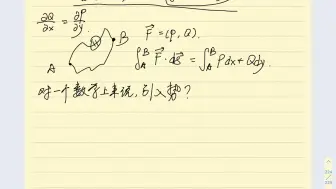 ∂Q/∂x = ∂P/∂y.
A B F⃗ = (P, Q).
∫_A^B F⃗·ds⃗ = ∫_A^B Pdx + Qdy.
对一个数学上来说，引入势？